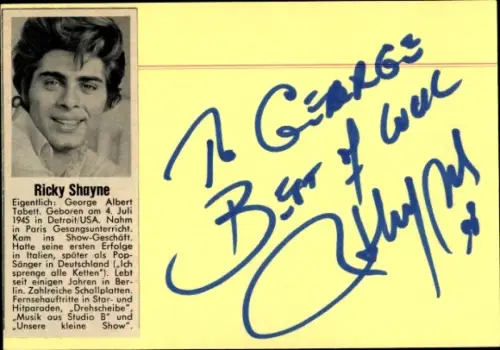 Ricky Shayne
Eigentlich: George Albert
Tabett. Geboren am 4. Juli
1945 in Detroit/USA. Nahm
in Paris Gesangsunterricht.
Kam ins Show-Geschäft.
Hatte seine ersten Erfolge
in Italien, später als Pop-
Sänger in Deutschland („Ich
sprenge alle Ketten"). Lebt
seit einigen Jahren in Ber-
lin. Zahlreiche Schallplatten.
Fernsehauftritte in Star- und
Hitparaden, „Drehscheibe",
„Musik aus Studio B" und
„Unsere kleine Show".
To GEORGE
BEST of LUCK